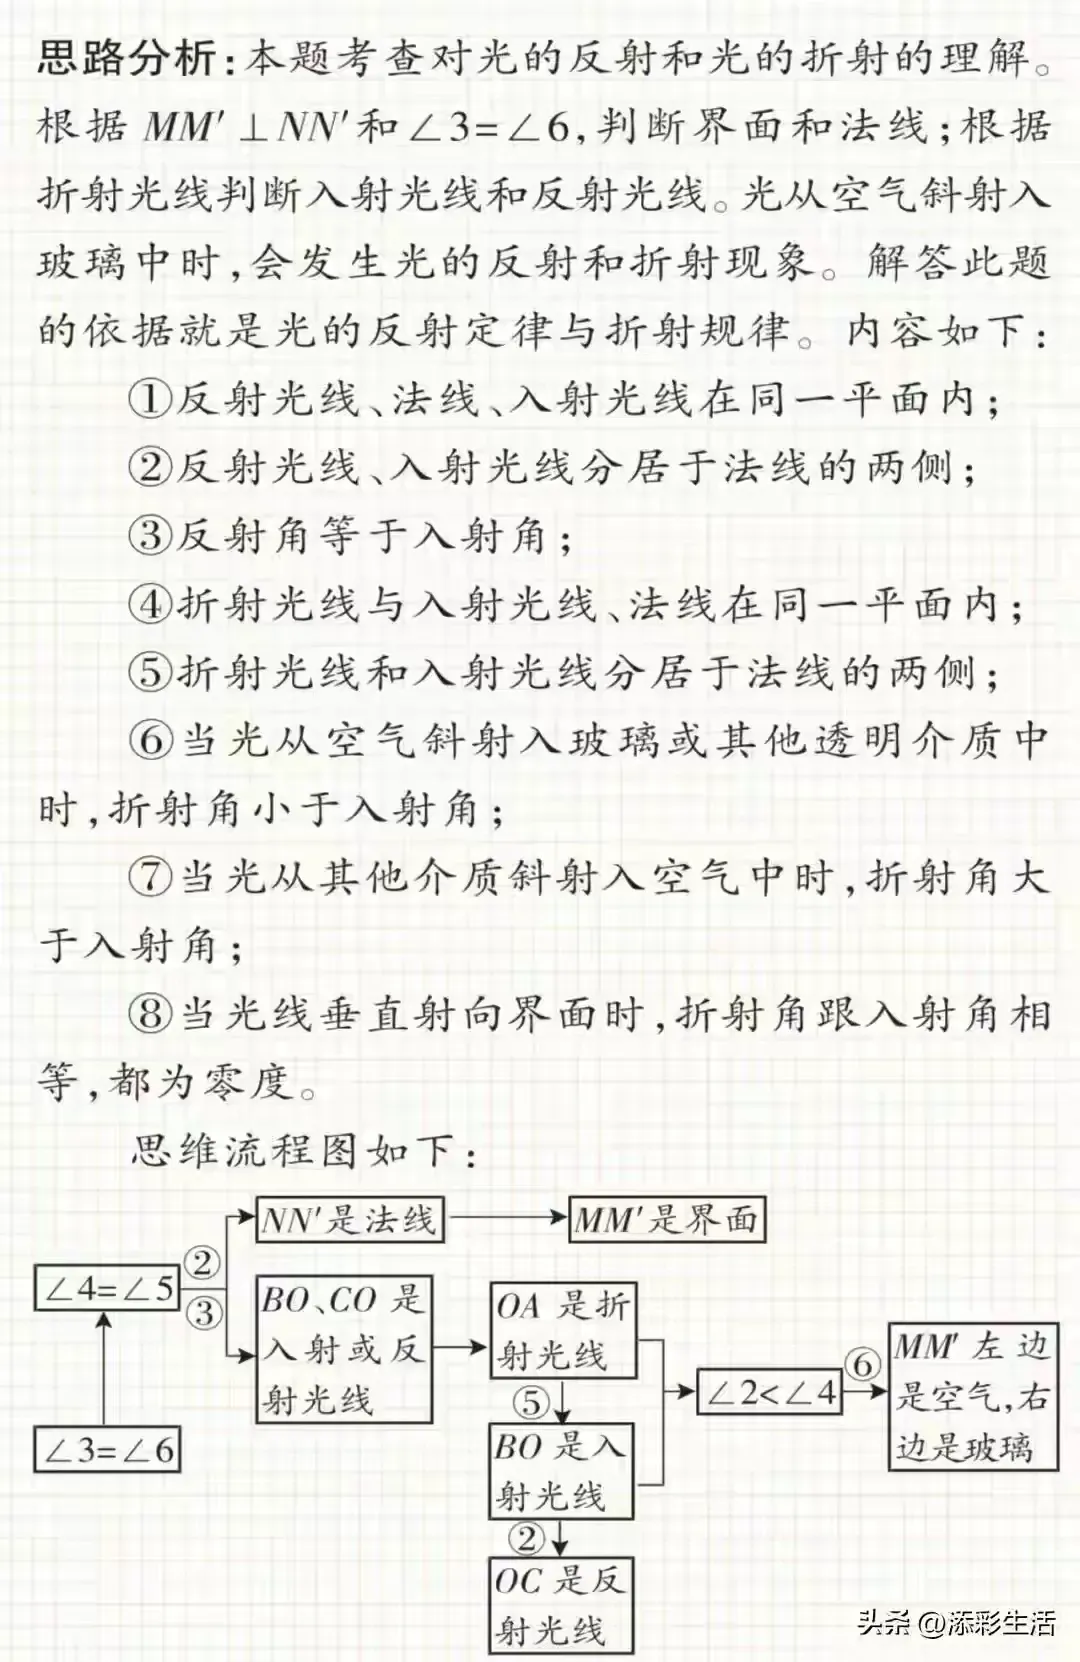 思路分析:本题考查对光的反射和光的折射的理解。
根据 MM′⊥NN′和∠3=∠6,判断界面和法线;根据
折射光线判断入射光线和反射光线。光从空气斜射入
玻璃中时,会发生光的反射和折射现象。解答此题
的依据就是光的反射定律与折射规律。内容如下:
①反射光线、法线、入射光线在同一平面内;
②反射光线、入射光线分居于法线的两侧;
③反射角等于入射角;
④折射光线与入射光线、法线在同一平面内;
⑤折射光线和入射光线分居于法线的两侧;
⑥当光从空气斜射入玻璃或其他透明介质中
时,折射角小于入射角;
⑦当光从其他介质斜射入空气中时,折射角大
于入射角;
⑧当光线垂直射向界面时,折射角跟入射角相
等,都为零度。
思维流程图如下:
NN′是法线
MM′是界面
∠4=∠5
②
③
∠3=∠6
BO、CO 是
入射或反
射光线
OA 是折
射光线
⑤
BO 是入
射光线
②
OC 是反
射光线
∠2<∠4
⑥
MM′左边
是空气,右
边是玻璃
头条 @添彩生活